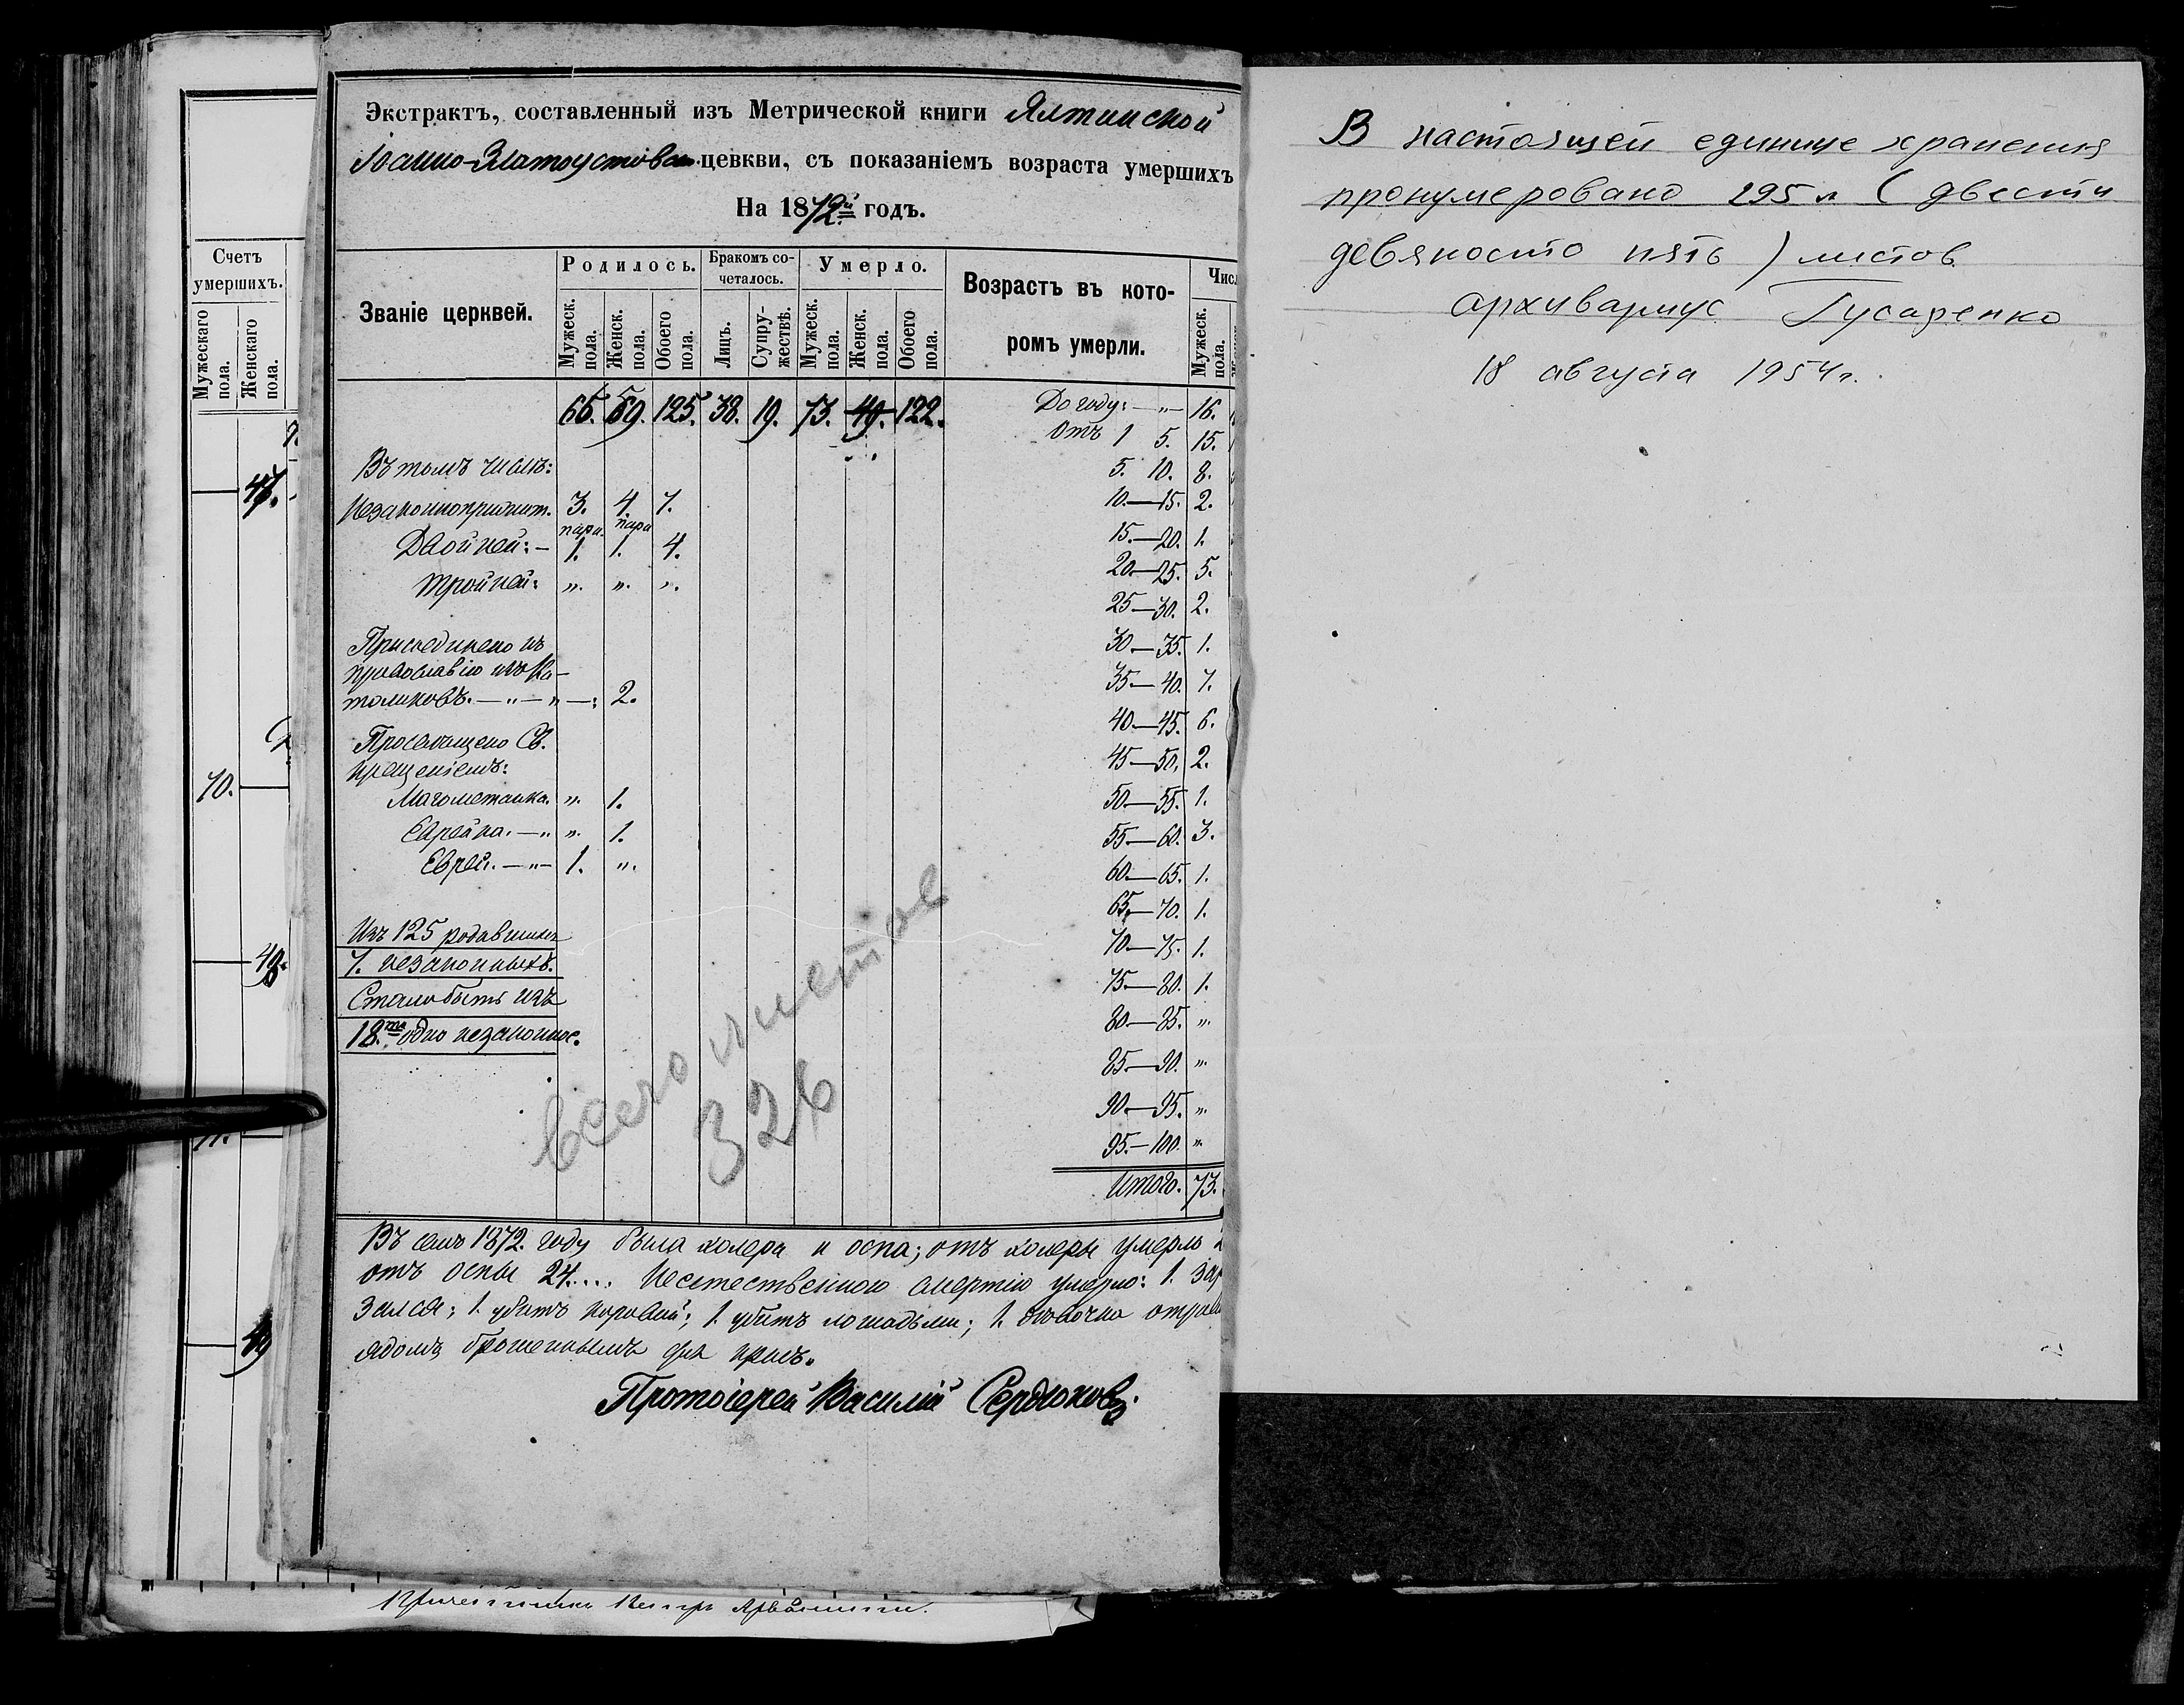 Счетъ
умершихъ.
Мужескаго пола.
Женскаго пола.
47.
70.
48.
71.
49
Экстрактъ, составленный изъ Метрической книги Ялтинской
Іоанно-Златоустовской цевкви, съ показаніемъ возраста умершихъ
На 1872й годъ.
Званіе церквей.
Родилось.
Бракомъ сочеталось.
Умерло.
Возрастъ въ которомъ умерли.
Мужеск. пола. Женск. пола. Обоего пола. Лицъ. Супружествъ. Мужеск. пола. Женск. пола. Обоего пола. Мужеск. пола.
66. 59. 125. 38. 19. 73. 49. 122.
Въ томъ числѣ:
Незаконноприжит. 3. 4. 7.
пара. пара
Двойней: — 1. 1. 4.
Тройней: „. „. „.
Присоединено къ
православію изъ Ка-
толиковъ. — „ — „ — : 2.
Просвящено Св.
крещеніемъ:
Магометанка. „. 1.
Еврейка. — „ „. 1.
Еврей. — „ — 1. „.
Изъ 125 родившихъ
7. незаконныхъ.
Стало быть изъ
18.ти одно незаконное.
До году: — „ — 16.
Отъ 1 5. 15.
5. 10. 8.
10. — 15. 2.
15. — 20. 1.
20. — 25. 5.
25 — 30. 2.
30 — 35. 1.
35 — 40. 7.
40 — 45. 6.
45 — 50. 2.
50 — 55. 1.
55 — 60. 3.
60 — 65. 1.
65 — 70. 1.
70 — 75. 1.
75 — 80. 1.
80 — 85. „.
85 — 90. „.
90 — 95. „.
95. — 100. „.
Итого. 73.
Всего листов
326
Въ семъ 1872. году была холера и оспа; отъ холеры умерло
отъ оспы 24.... Неестественною смертію умерло: 1.
1. убитъ коровой; 1. убитъ лошадьми; 1. дѣвочка
ядомъ брошеннымъ для крысъ.
Протоіерей Василій Сердюковъ.
В настоящей единице хранения
пронумеровано 295 л (двести
девяносто пять) листов
архивариус Гусаренко
18 августа 1954 г.